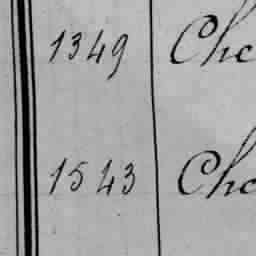 1349 Chc
1543 Chc